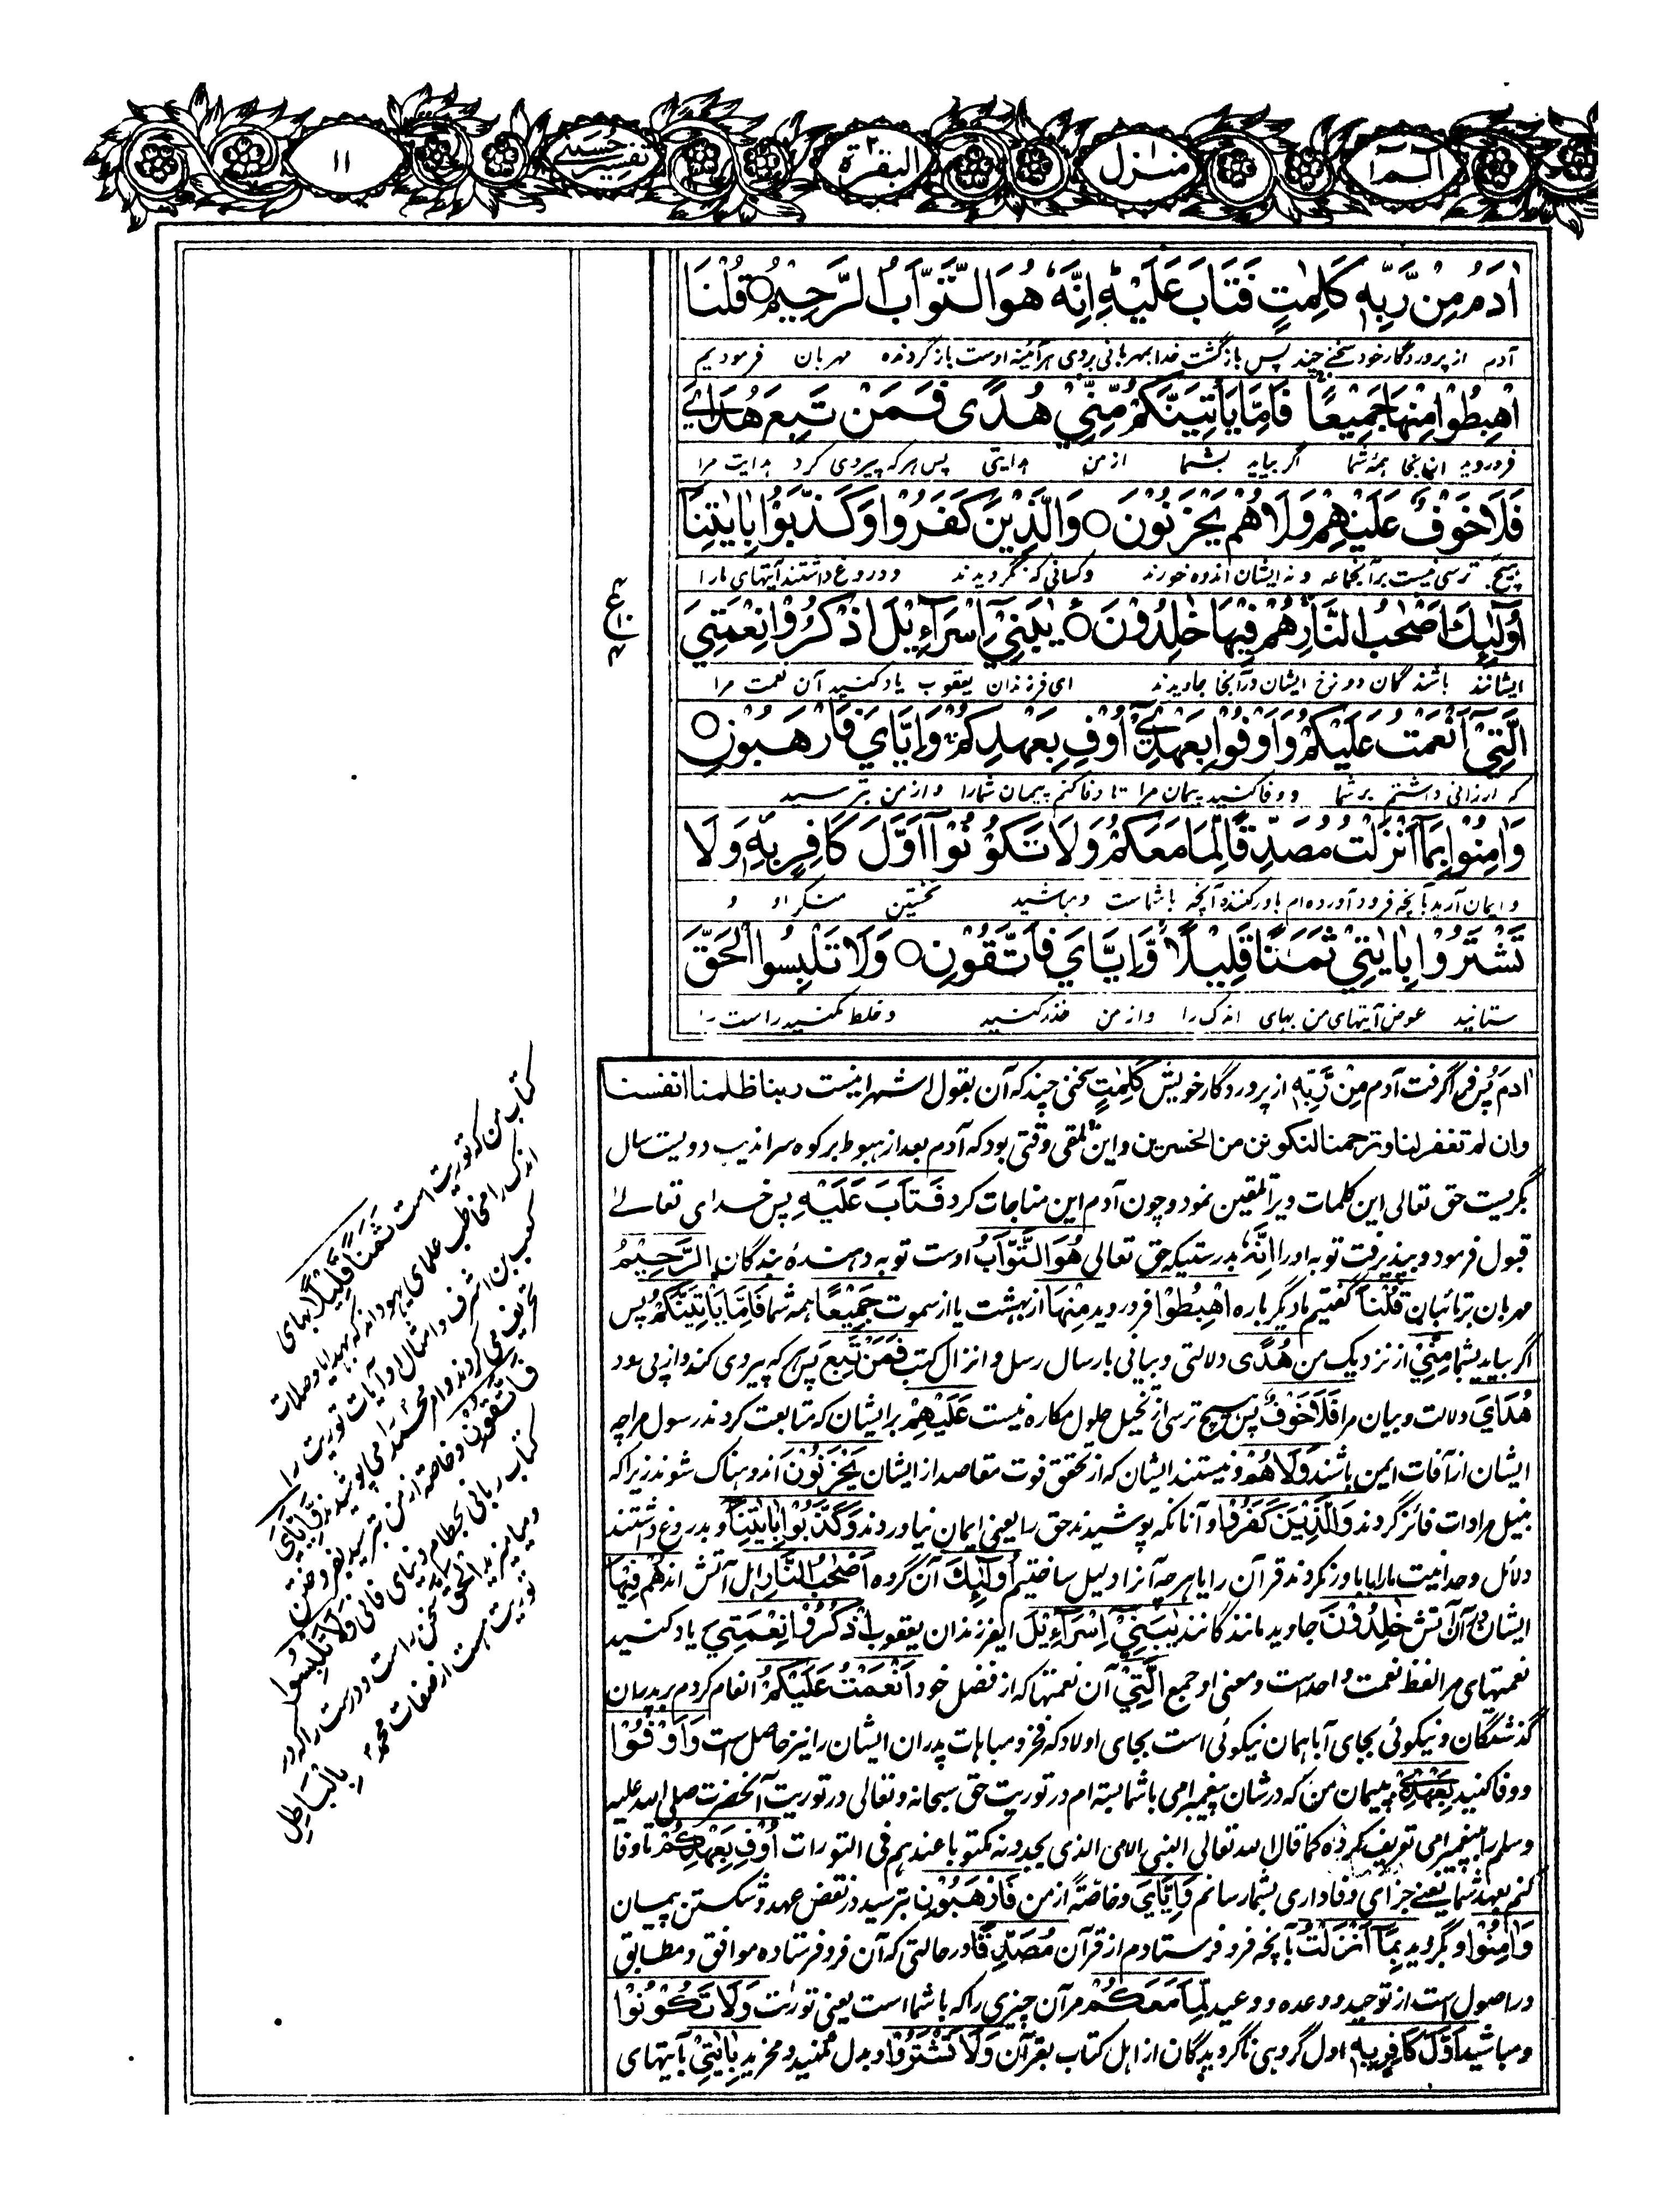 الٓمٓ ١
منزل ١
البقرة ٢
تفسیر حسینی
١١
اٰدَمُ مِنْ رَّبِّهٖ كَلِمٰتٍ فَتَابَ عَلَيْهِ ؕ اِنَّهٗ هُوَ التَّوَّابُ الرَّحِيْمُ ○ قُلْنَا
آدم از پروردگار خود سخنے چند پس بازگشت خدا بمهربانی بروی هر آئینه اوست باز گردنده مهربان فرمودیم
اهْبِطُوْا مِنْهَا جَمِيْعًا ۚ فَاِمَّا يَاْتِيَنَّكُمْ مِّنِّيْ هُدًى فَمَنْ تَبِعَ هُدَايَ
فرو روید از اینجا همه شما اگر بیاید بشما از من هدایتی پس هر که پیروی کرد هدایت مرا
فَلَا خَوْفٌ عَلَيْهِمْ وَلَا هُمْ يَحْزَنُوْنَ ○ وَالَّذِيْنَ كَفَرُوْا وَكَذَّبُوْا بِاٰيٰتِنَا
هیچ ترسی نیست بر آنجماعه و نه ایشان اندوه خورند و کسانی که نگرویدند و دروغ داشتند آیتهای ما را
اُولٰٓئِكَ اَصْحٰبُ النَّارِ ۚ هُمْ فِيْهَا خٰلِدُوْنَ ○ يٰبَنِيْٓ اِسْرَآءِيْلَ اذْكُرُوْا نِعْمَتِيَ
ایشانند باشندگان دوزخ ایشان در آنجا جاویدند ای فرزندان یعقوب یاد کنید آن نعمت مرا
الَّتِيْٓ اَنْعَمْتُ عَلَيْكُمْ وَاَوْفُوْا بِعَهْدِيْٓ اُوْفِ بِعَهْدِكُمْ ۚ وَاِيَّايَ فَارْهَبُوْنِ ○
که ارزانی داشتم بر شما و وفا کنید پیمان مرا تا وفا کنم پیمان شما را و از من بترسید
وَاٰمِنُوْا بِمَآ اَنْزَلْتُ مُصَدِّقًا لِّمَا مَعَكُمْ وَلَا تَكُوْنُوْٓا اَوَّلَ كَافِرٍۭ بِهٖ ۪ وَلَا
و ایمان آرید بآنچه فرود آورده ام باور کننده آنچه با شماست و مباشید نخستین منکر او و
تَشْتَرُوْا بِاٰيٰتِيْ ثَمَنًا قَلِيْلًا ۫ وَّاِيَّايَ فَاتَّقُوْنِ ○ وَلَا تَلْبِسُوا الْحَقَّ
ستانید عوض آیتهای من بهای اندک را و از من حذر کنید و خلط مکنید راست را
ع
اٰدَمُ پس فرا گرفت آدم مِنْ رَّبِّهٖ از پروردگار خویش كَلِمٰتٍ سخنی چند که آن بقول اشهر اینست ربنا ظلمنا انفسنا
وان لم تغفر لنا وترحمنا لنكونن من الخسرين و این تلقی وقتی بود که آدم بعد از هبوط بر کوه سراندیب دویست سال
بگریست حق تعالی این کلمات ویرا تلقین نمود و چون آدم این مناجات کرد فَتَابَ عَلَيْهِ پس خدای تعالے
قبول فرمود و بپذیرفت توبه او را اِنَّهٗ بدرستیکه حق تعالی هُوَ التَّوَّابُ اوست توبه دهندهٔ بندگان الرَّحِيْمُ
مهربان بر تائبان قُلْنَا گفتیم ما دیگر باره اهْبِطُوْا فرو روید مِنْهَا از بهشت یا از سموت جَمِيْعًا همه شما فَاِمَّا يَاْتِيَنَّكُمْ پس
اگر بیاید بشما مِّنِّيْ از نزدیک من هُدًى دلالتی و بیانی بارسال رسل و انزال کتب فَمَنْ تَبِعَ پس هر که پیروی کند و از پی رود
هُدَايَ دلالت و بیان مرا فَلَا خَوْفٌ پس هیچ ترسی از تخیل حلول مکاره نیست عَلَيْهِمْ بر ایشان که متابعت کردند رسول مرا چه
ایشان از آفات ایمن باشند وَلَا هُمْ و نیستند ایشان که از تحقق فوت مقاصد از ایشان يَحْزَنُوْنَ اندوهناک شوند زیرا که
بنیل مرادات فائز گردند وَالَّذِيْنَ كَفَرُوْا و آنانکه پوشیدند حق را یعنی ایمان نیاوردند وَكَذَّبُوْا بِاٰيٰتِنَا و بدروغ داشتند
دلائل وحدانیت ما را یا باور نکردند قرآن را یا هرچه آنرا دلیل ساختیم اُولٰٓئِكَ آن گروه اَصْحٰبُ النَّارِ اهل آتش اند هُمْ فِيْهَا
ایشان در آن آتش خٰلِدُوْنَ جاوید مانندگانند يٰبَنِيْٓ اِسْرَآءِيْلَ ای فرزندان یعقوب اذْكُرُوْا نِعْمَتِيَ یاد کنید
نعمتهای مرا لفظ نعمت واحد است و معنی او جمع الَّتِيْ آن نعمتها که از فضل خود اَنْعَمْتُ عَلَيْكُمْ انعام کردم بر پدران
گذشتگان و نیکوئی بجای آبا همان نیکوئی است بجای اولاد که فخر و مباهات پدران ایشان را نیز حاصل است وَاَوْفُوْا
و وفا کنید بِعَهْدِيْٓ به پیمان من که در شان پیغمبر امی با شما بسته ام در توریت حق سبحانه و تعالی در توریت آنحضرت صلی الله علیه
وسلم را به پیغمبر امی تعریف کرده کما قال الله تعالی النبی الامی الذی یجدونه مکتوبا عندهم فی التورات اُوْفِ بِعَهْدِكُمْ تا وفا
کنم بعهد شما یعنے جزای وفاداری بشما رسانم وَاِيَّايَ و خاصّةً از من فَارْهَبُوْنِ بترسید در نقض عهد و شکستن پیمان
وَاٰمِنُوْا و بگروید بِمَآ اَنْزَلْتُ بآنچه فرو فرستادم از قرآن مُصَدِّقًا در حالتی که آن فرو فرستاده موافق و مطابق
در اصول است از توحید و وعده و وعید لِّمَا مَعَكُمْ مر آن چیزی را که با شما است یعنی تورات وَلَا تَكُوْنُوْا
و مباشید اَوَّلَ كَافِرٍۭ بِهٖ اول گروهی ناگرویدگان از اهل کتاب بقرآن وَلَا تَشْتَرُوْا و بدل مکنید و مخرید بِاٰيٰتِيْ بآیتهای
کتاب من که توریت است ثَمَنًا قَلِيْلًا بهای
اندک را مخاطب علمای یهودانند که بهدایا و صلات
کعب بن اشرف و امثال او آیات توریت را
تحریف می کردند و امر محمد را می پوشیدند وَّاِيَّايَ
فَاتَّقُوْنِ و خاصة از من بترسید بفروختن
کتاب ربانی بحطام دنیای فانی وَلَا تَلْبِسُوا
و میامیزید الْحَقَّ سخن راست و درست را که در
توریت است از صفات محمد بِالْبَاطِلِ